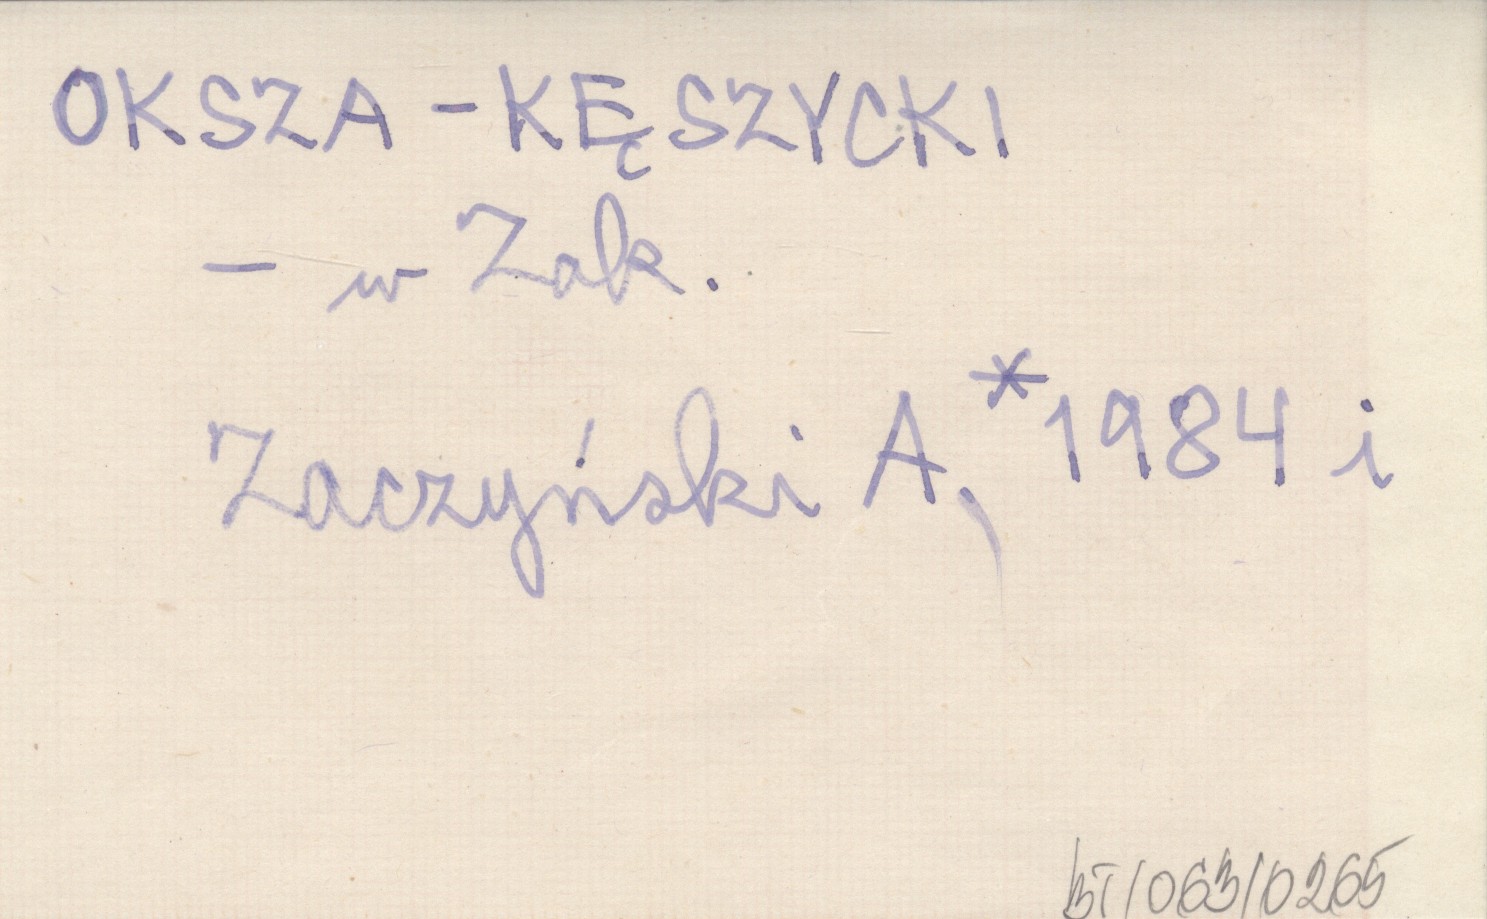 OKSZA - KĘSZYCKI
- w Zak.
Zaczyński A, * 1984 i
BT/063/0265